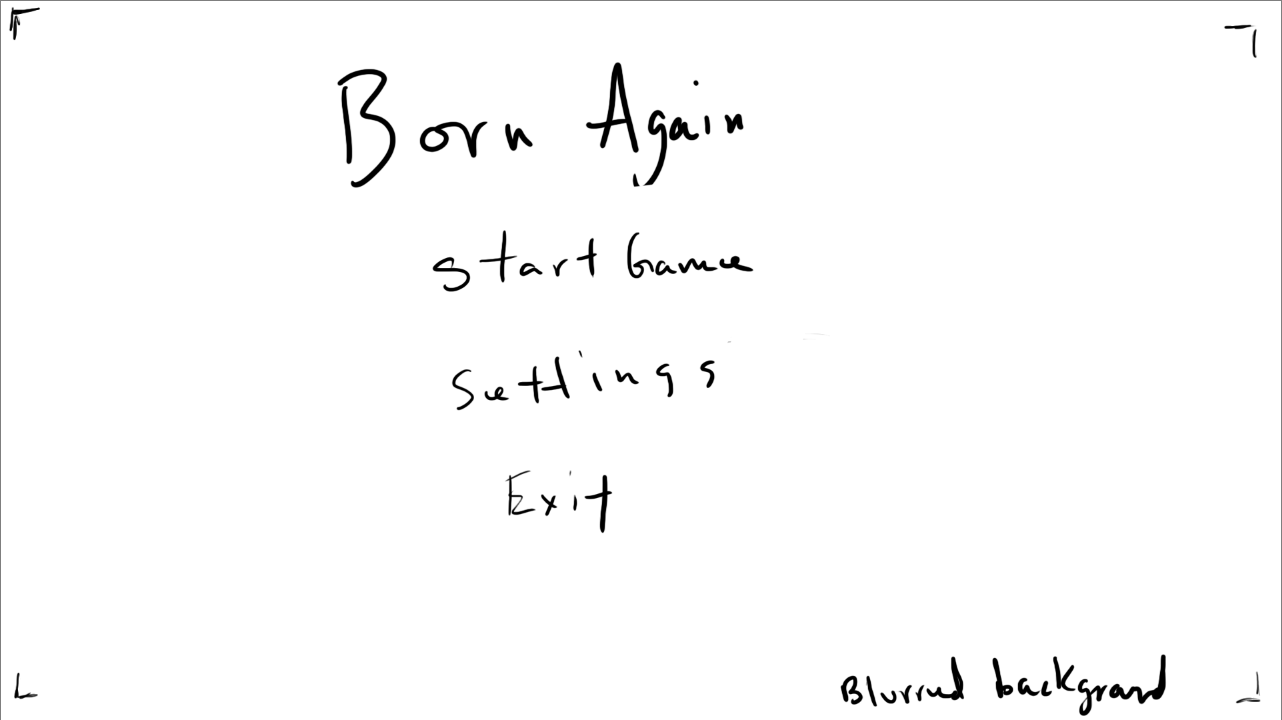 Born Again
start Game
Settings
Exit
Blurred background